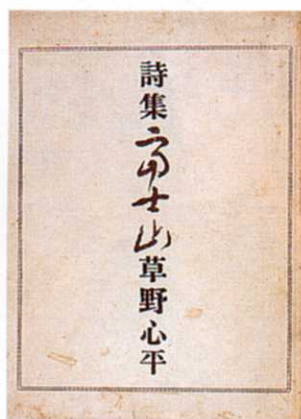 詩集富士山草野心平